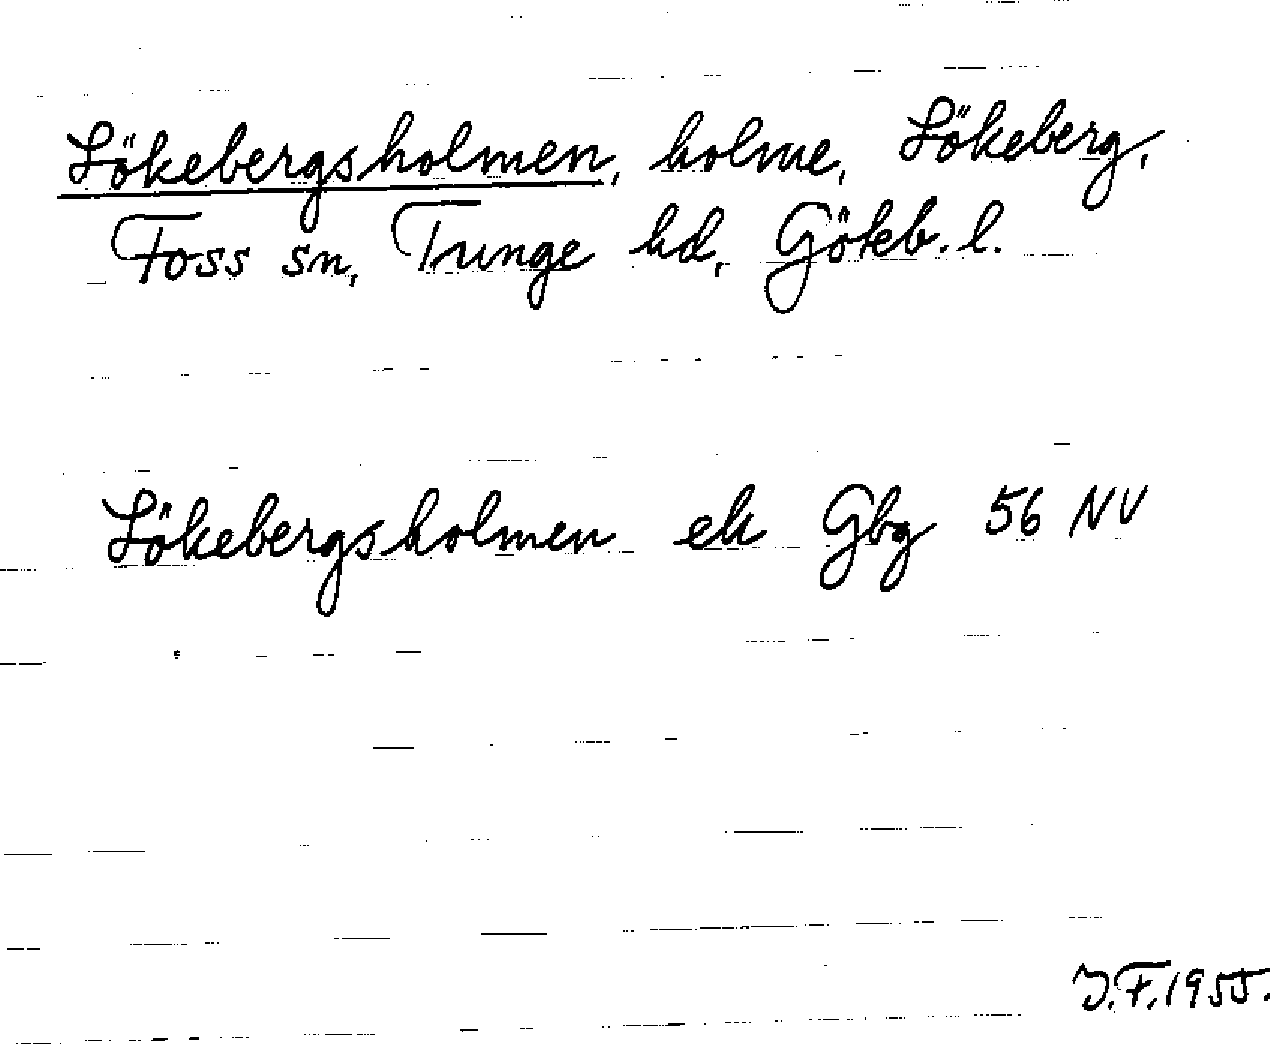 Lökebergsholmen, holme, Lökeberg,
Foss sn, Tunge hd, Göteb. l.
Lökebergsholmen ek Gbg 56 NV
J.F. 1955.